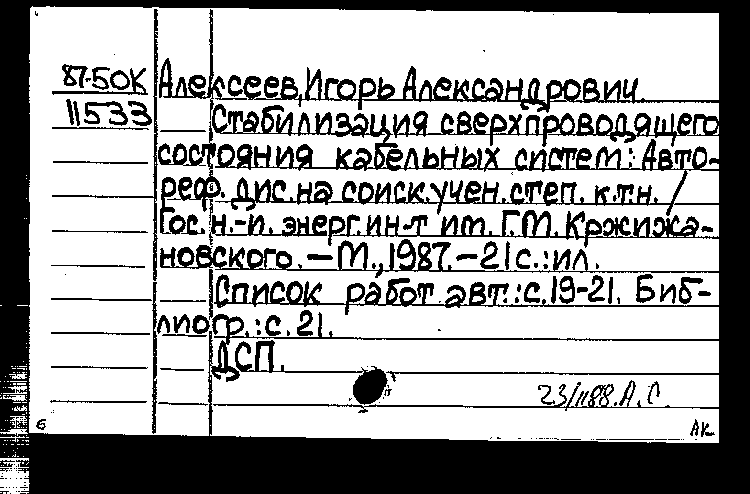 87-50К Алексеев, Игорь Александрович.
11533 Стабилизация сверхпроводящего
состояния кабельных систем: Авто-
реф. дис. на соиск. учен. степ. к.т.н. /
Гос. н.-и. энерг. ин-т им. Г.М. Кржижа-
новского. – М., 1987. – 21 с.: ил.
Список работ авт.: с. 19-21. Биб-
лиогр.: с. 21.
ДСП.
А.С.
6 АК